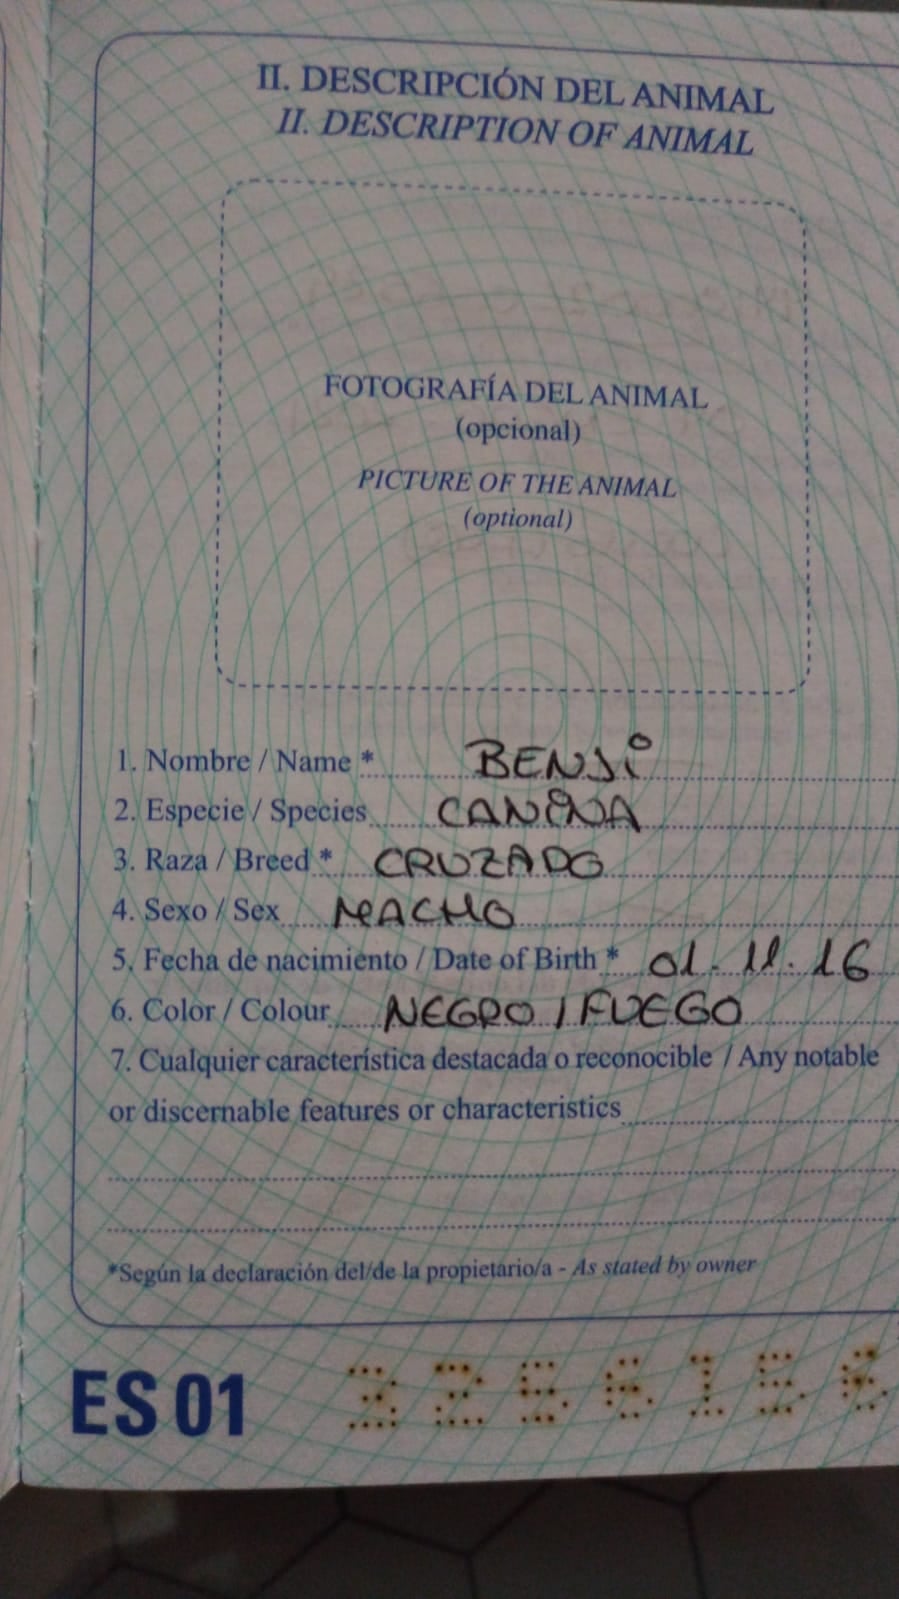 II. DESCRIPCIÓN DEL ANIMAL
II. DESCRIPTION OF ANIMAL
FOTOGRAFÍA DEL ANIMAL
(opcional)
PICTURE OF THE ANIMAL
(optional)
1. Nombre / Name * BENJi
2. Especie / Species CANINA
3. Raza / Breed * CRUZADO
4. Sexo / Sex MACHO
5. Fecha de nacimiento / Date of Birth * 01.11.16
6. Color / Colour NEGRO / FUEGO
7. Cualquier característica destacada o reconocible / Any notable
or discernable features or characteristics
*Según la declaración del/de la propietario/a - As stated by owner
ES 01